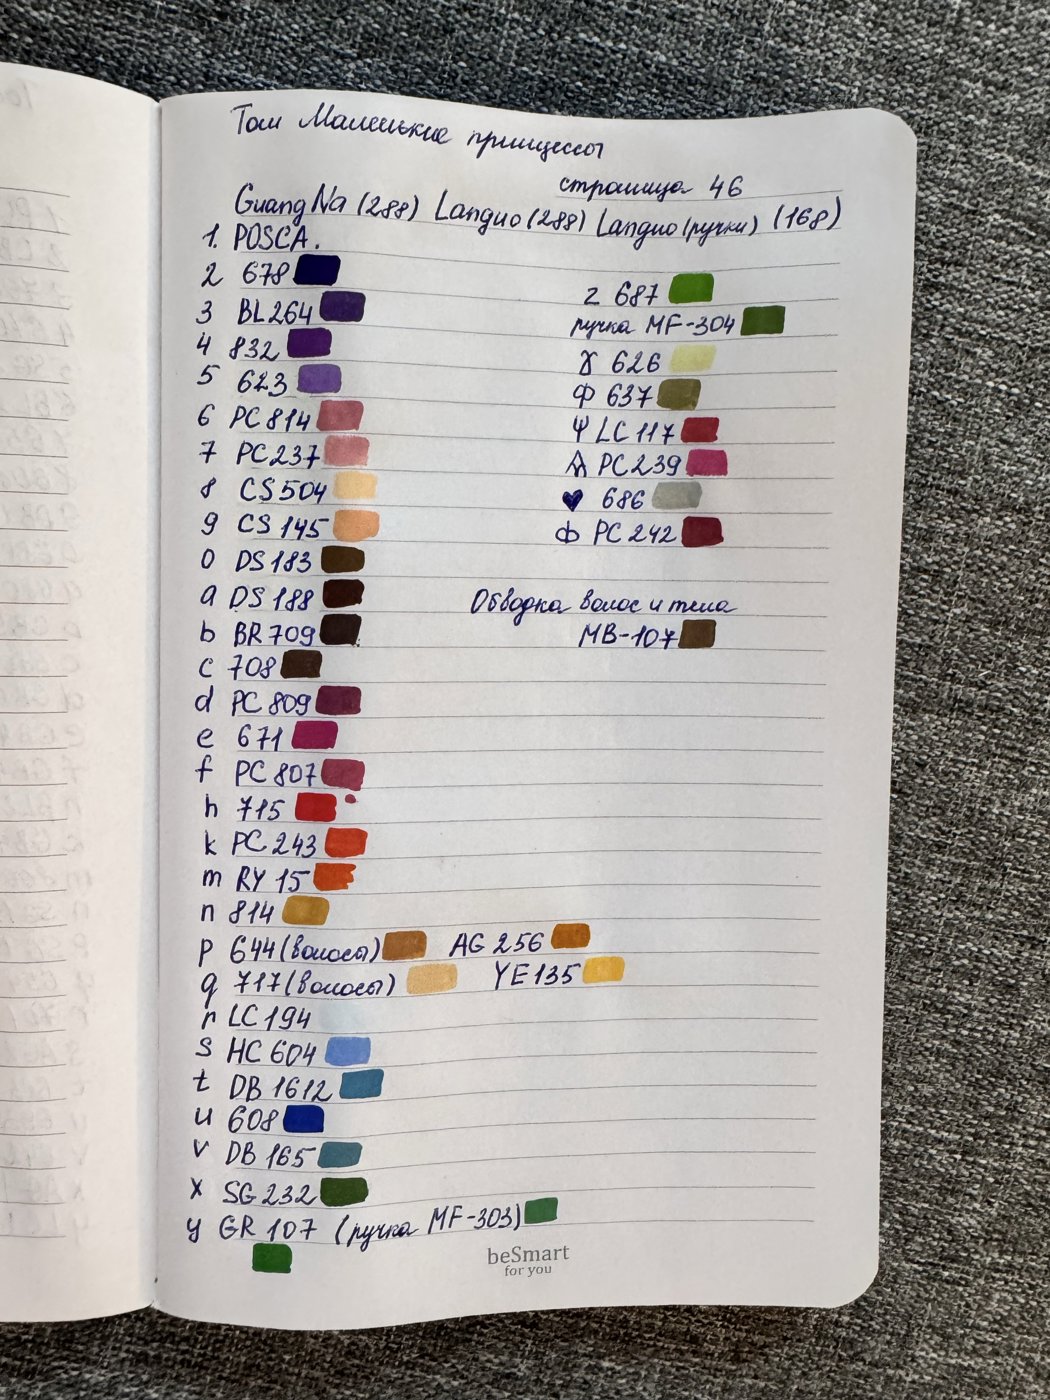 Том Маленькие принцессы
страница 46
GuangNa (288) Languo (288) Languo (ручки) (168)
1. POSCA.
2 678
3 BL264
4 832
5 623
6 PC 814
7 PC 237
8 CS 504
9 CS 145
0 DS 183
a DS 188
b BR 709
c 708
d PC 809
e 671
f PC 807
h 715
k PC 243
m RY 15
n 814
p 644 (волосы) AG 256
q 717 (волосы) YE 135
r LC 194
s HC 604
t DB 1612
u 608
v DB 165
x SG 232
y GR 107 (ручка MF-303)
z 687
ручка MF-304
ɣ 626
Ф 637
Ψ LC 117
A PC 239
♥ 686
ф PC 242
Обводка волос и тела
MB-107
beSmart
for you